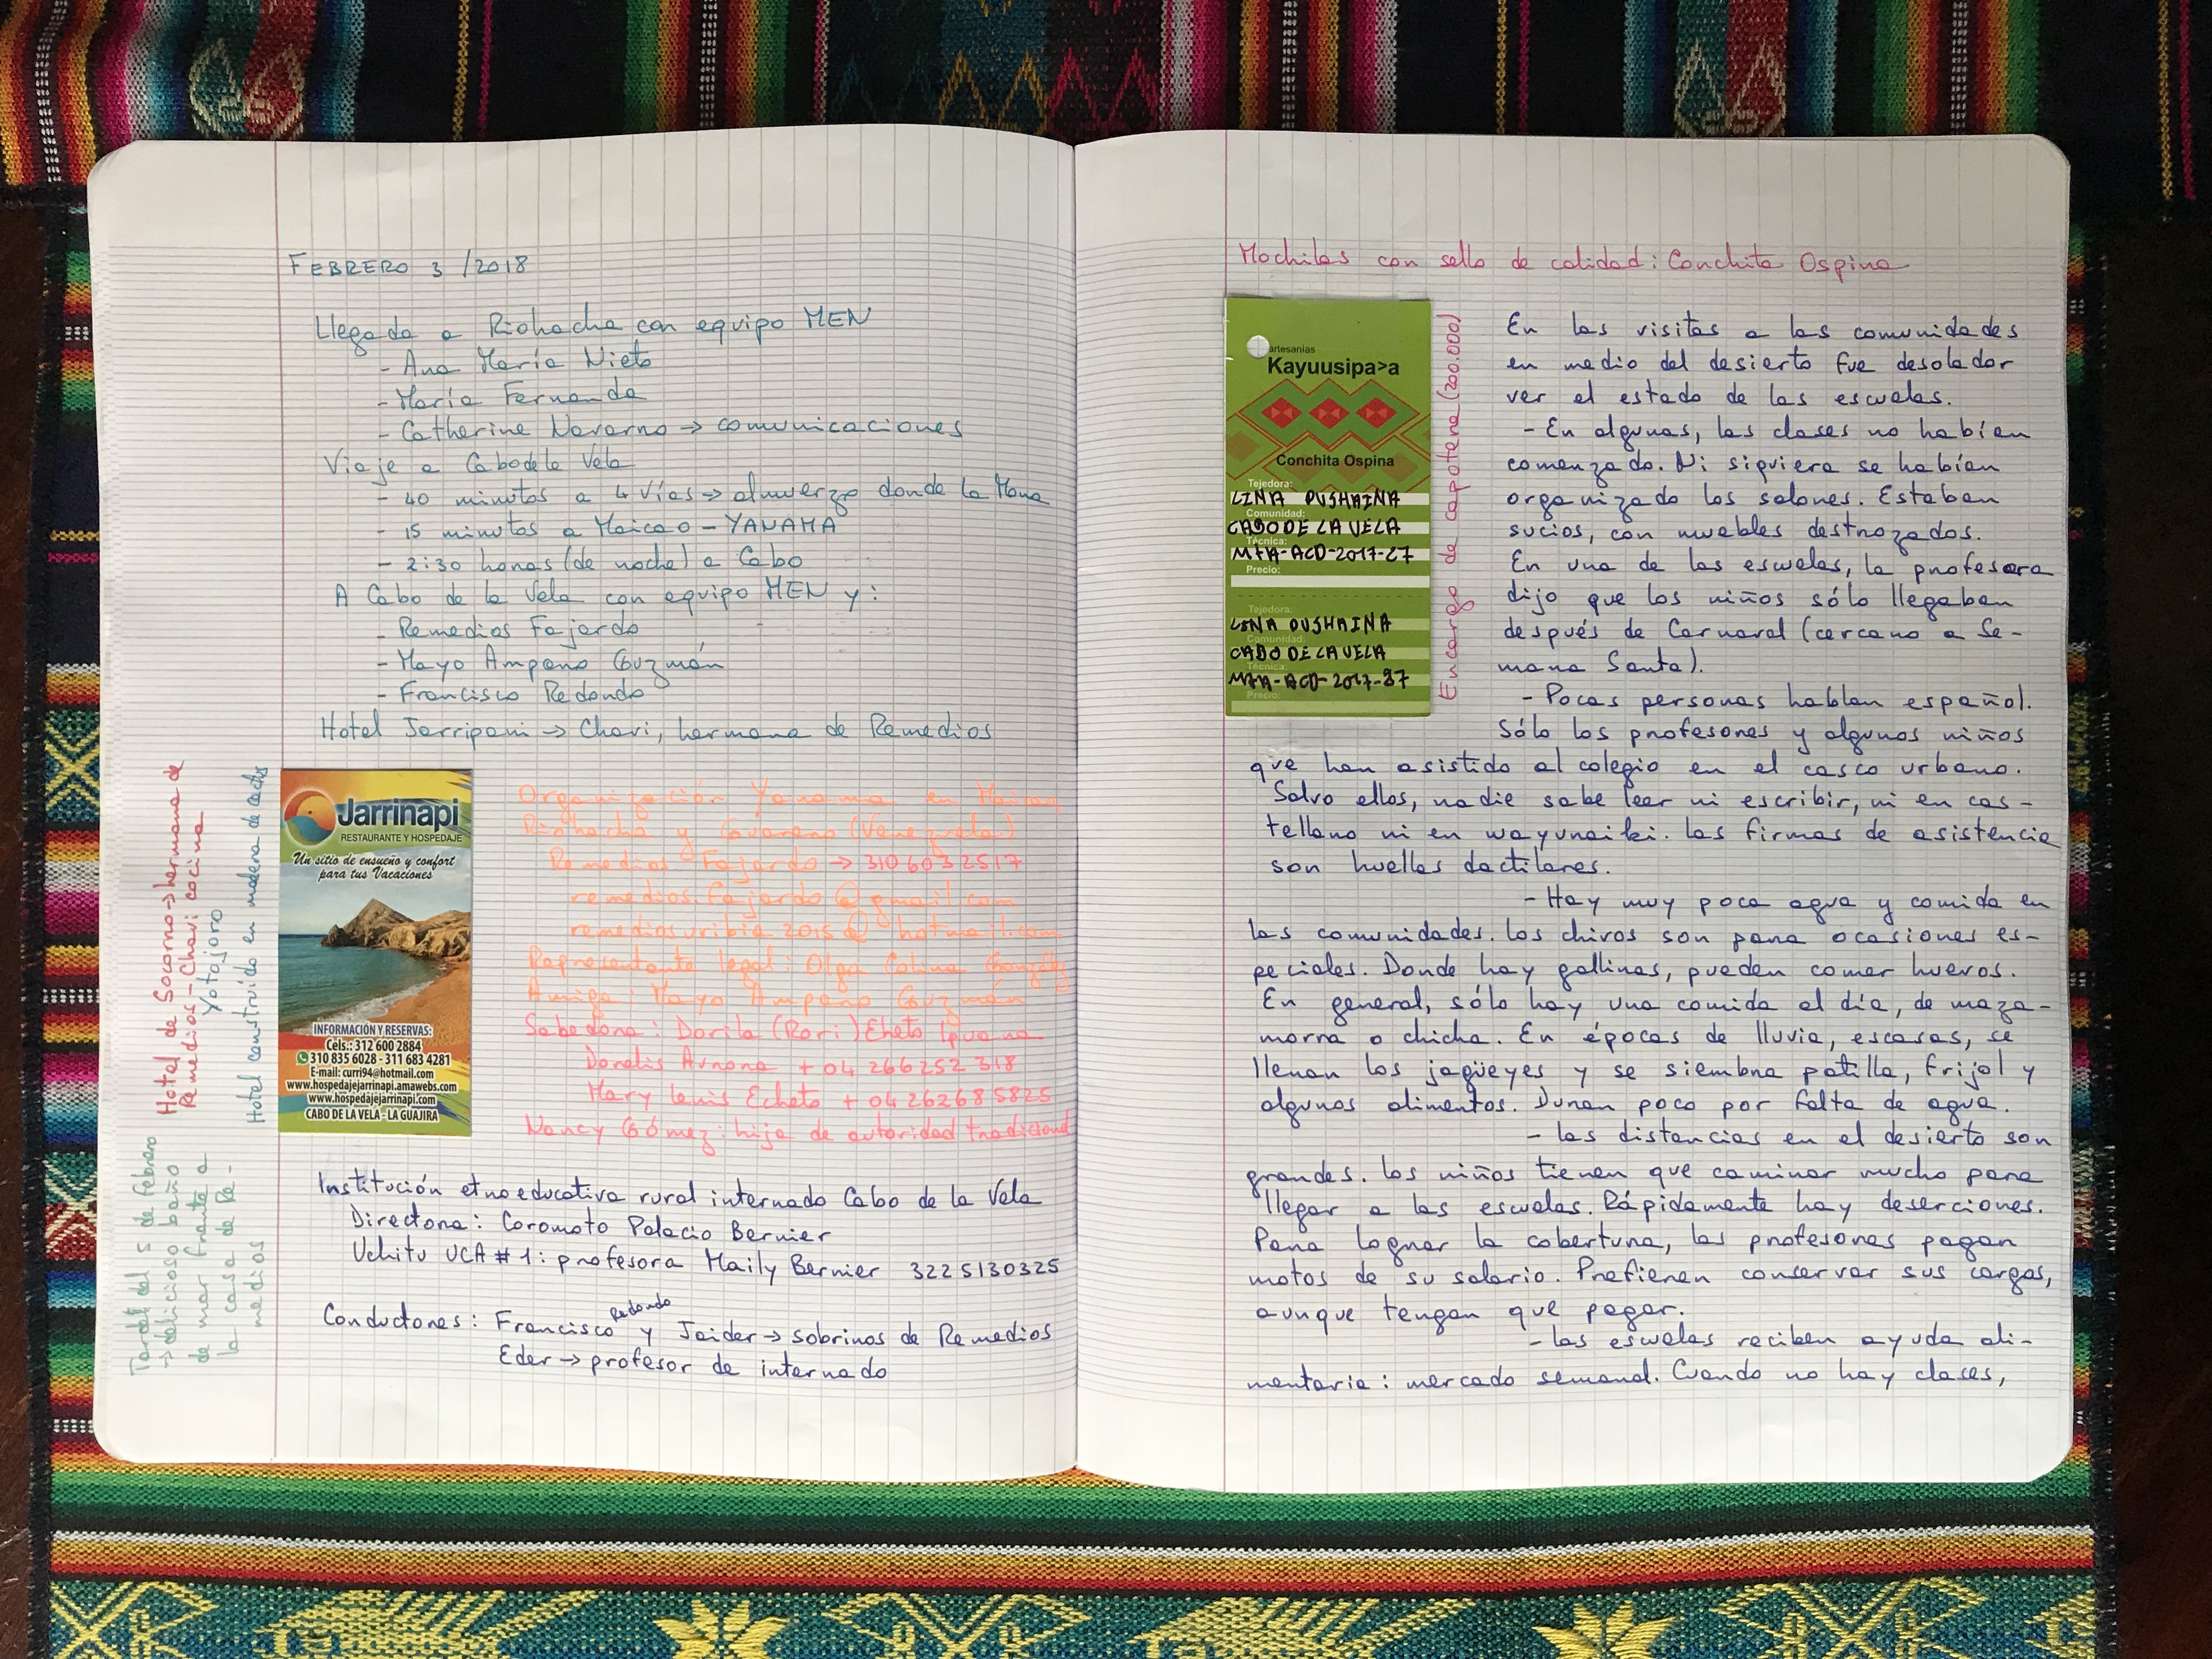 FEBRERO 3 /2018
Llegada a Riohacha con equipo MEN
- Ana María Nieto
- María Fernanda
- Catherine Navarro → comunicaciones
Viaje a Cabo de la Vela
- 40 minutos a 4 Vías → almuerzo donde la Mona
- 15 minutos a Maicao - YANAMA
- 2:30 horas (de noche) a Cabo
A Cabo de la Vela con equipo MEN y:
- Remedios Fajardo
- Mayo Amparo Guzmán
- Francisco Redondo
Hotel Jarripani → Chavi, hermana de Remedios
Hotel de Socorro → hermana de
Remedios - Chavi cocina
Yotojoro
Hotel construído en madera de cactus
Jarrinapi
RESTAURANTE Y HOSPEDAJE
Un sitio de ensueño y confort
para tus Vacaciones
INFORMACIÓN Y RESERVAS:
Cels.: 312 600 2884
310 835 6028 - 311 683 4281
E-mail: curri94@hotmail.com
www.hospedajejarrinapi.amawebs.com
www.hospedajejarrinapi.com
CABO DE LA VELA - LA GUAJIRA
Organización Yanama en Maicao,
Riohacha y (Venezuela)
Remedios Fajardo → 310 6032517
remedios.fajardo@gmail.com
remediosuribia2015@hotmail.com
Representante legal: Olga Colina González
Amiga: Mayo Amparo Guzmán
Sabedora: Dorila (Rori) Echeto Ipuana
Donelis + 04 266252 318
Mary Lewis Echeto + 04 26268 5825
Nancy Gómez: hija de autoridad tradicional
Tarde del 5 de febrero
→ delicioso baño
de mar frente a
la casa de Re-
medios
Institución etnoeducativa rural internado Cabo de la Vela
Directora: Coromoto Palacio Bernier
Uchitu UCA # 1: profesora Maily Bernier 3225130325
Conductores: Francisco Redondo y Jaider → sobrinos de Remedios
Eder → profesor de internado
Mochilas con sello de calidad: Conchita Ospina
artesanías
Kayuusipa>a
Conchita Ospina
Tejedora:
LINA PUSHAINA
Comunidad:
CABO DE LA VELA
Técnica:
MFA-ACD-2017-27
Precio:
Tejedora:
LINA PUSHAINA
Comunidad:
CABO DE LA VELA
Técnica:
MFA-ACD-2017-37
Precio:
Encargo de capotera (200.000)
En las visitas a las comunidades
en medio del desierto fue desolador
ver el estado de las escuelas.
- En algunas, las clases no habían
comenzado. Ni siquiera se habían
organizado los salones. Estaban
sucios, con muebles destrozados.
En una de las escuelas, la profesora
dijo que los niños sólo llegaban
después de Carnaval (cercano a Se-
mana Santa).
- Pocas personas hablan español.
Sólo los profesores y algunos niños
que han asistido al colegio en el casco urbano.
Salvo ellos, nadie sabe leer ni escribir, ni en cas-
tellano ni en wayunaiki. Las firmas de asistencia
son huellas dactilares.
- Hay muy poca agua y comida en
las comunidades. Los chivos son para ocasiones es-
peciales. Donde hay gallinas, pueden comer huevos.
En general, sólo hay una comida al día, de maza-
morra o chicha. En épocas de lluvia, escasas, se
llenan los jagüeyes y se siembra patilla, frijol y
algunos alimentos. Duran poco por falta de agua.
- Las distancias en el desierto son
grandes. Los niños tienen que caminar mucho para
llegar a las escuelas. Rápidamente hay deserciones.
Para lograr la cobertura, los profesores pagan
motos de su salario. Prefieren conservar sus cargos,
aunque tengan que pagar.
- Las escuelas reciben ayuda ali-
mentaria: mercado semanal. Cuando no hay clases,